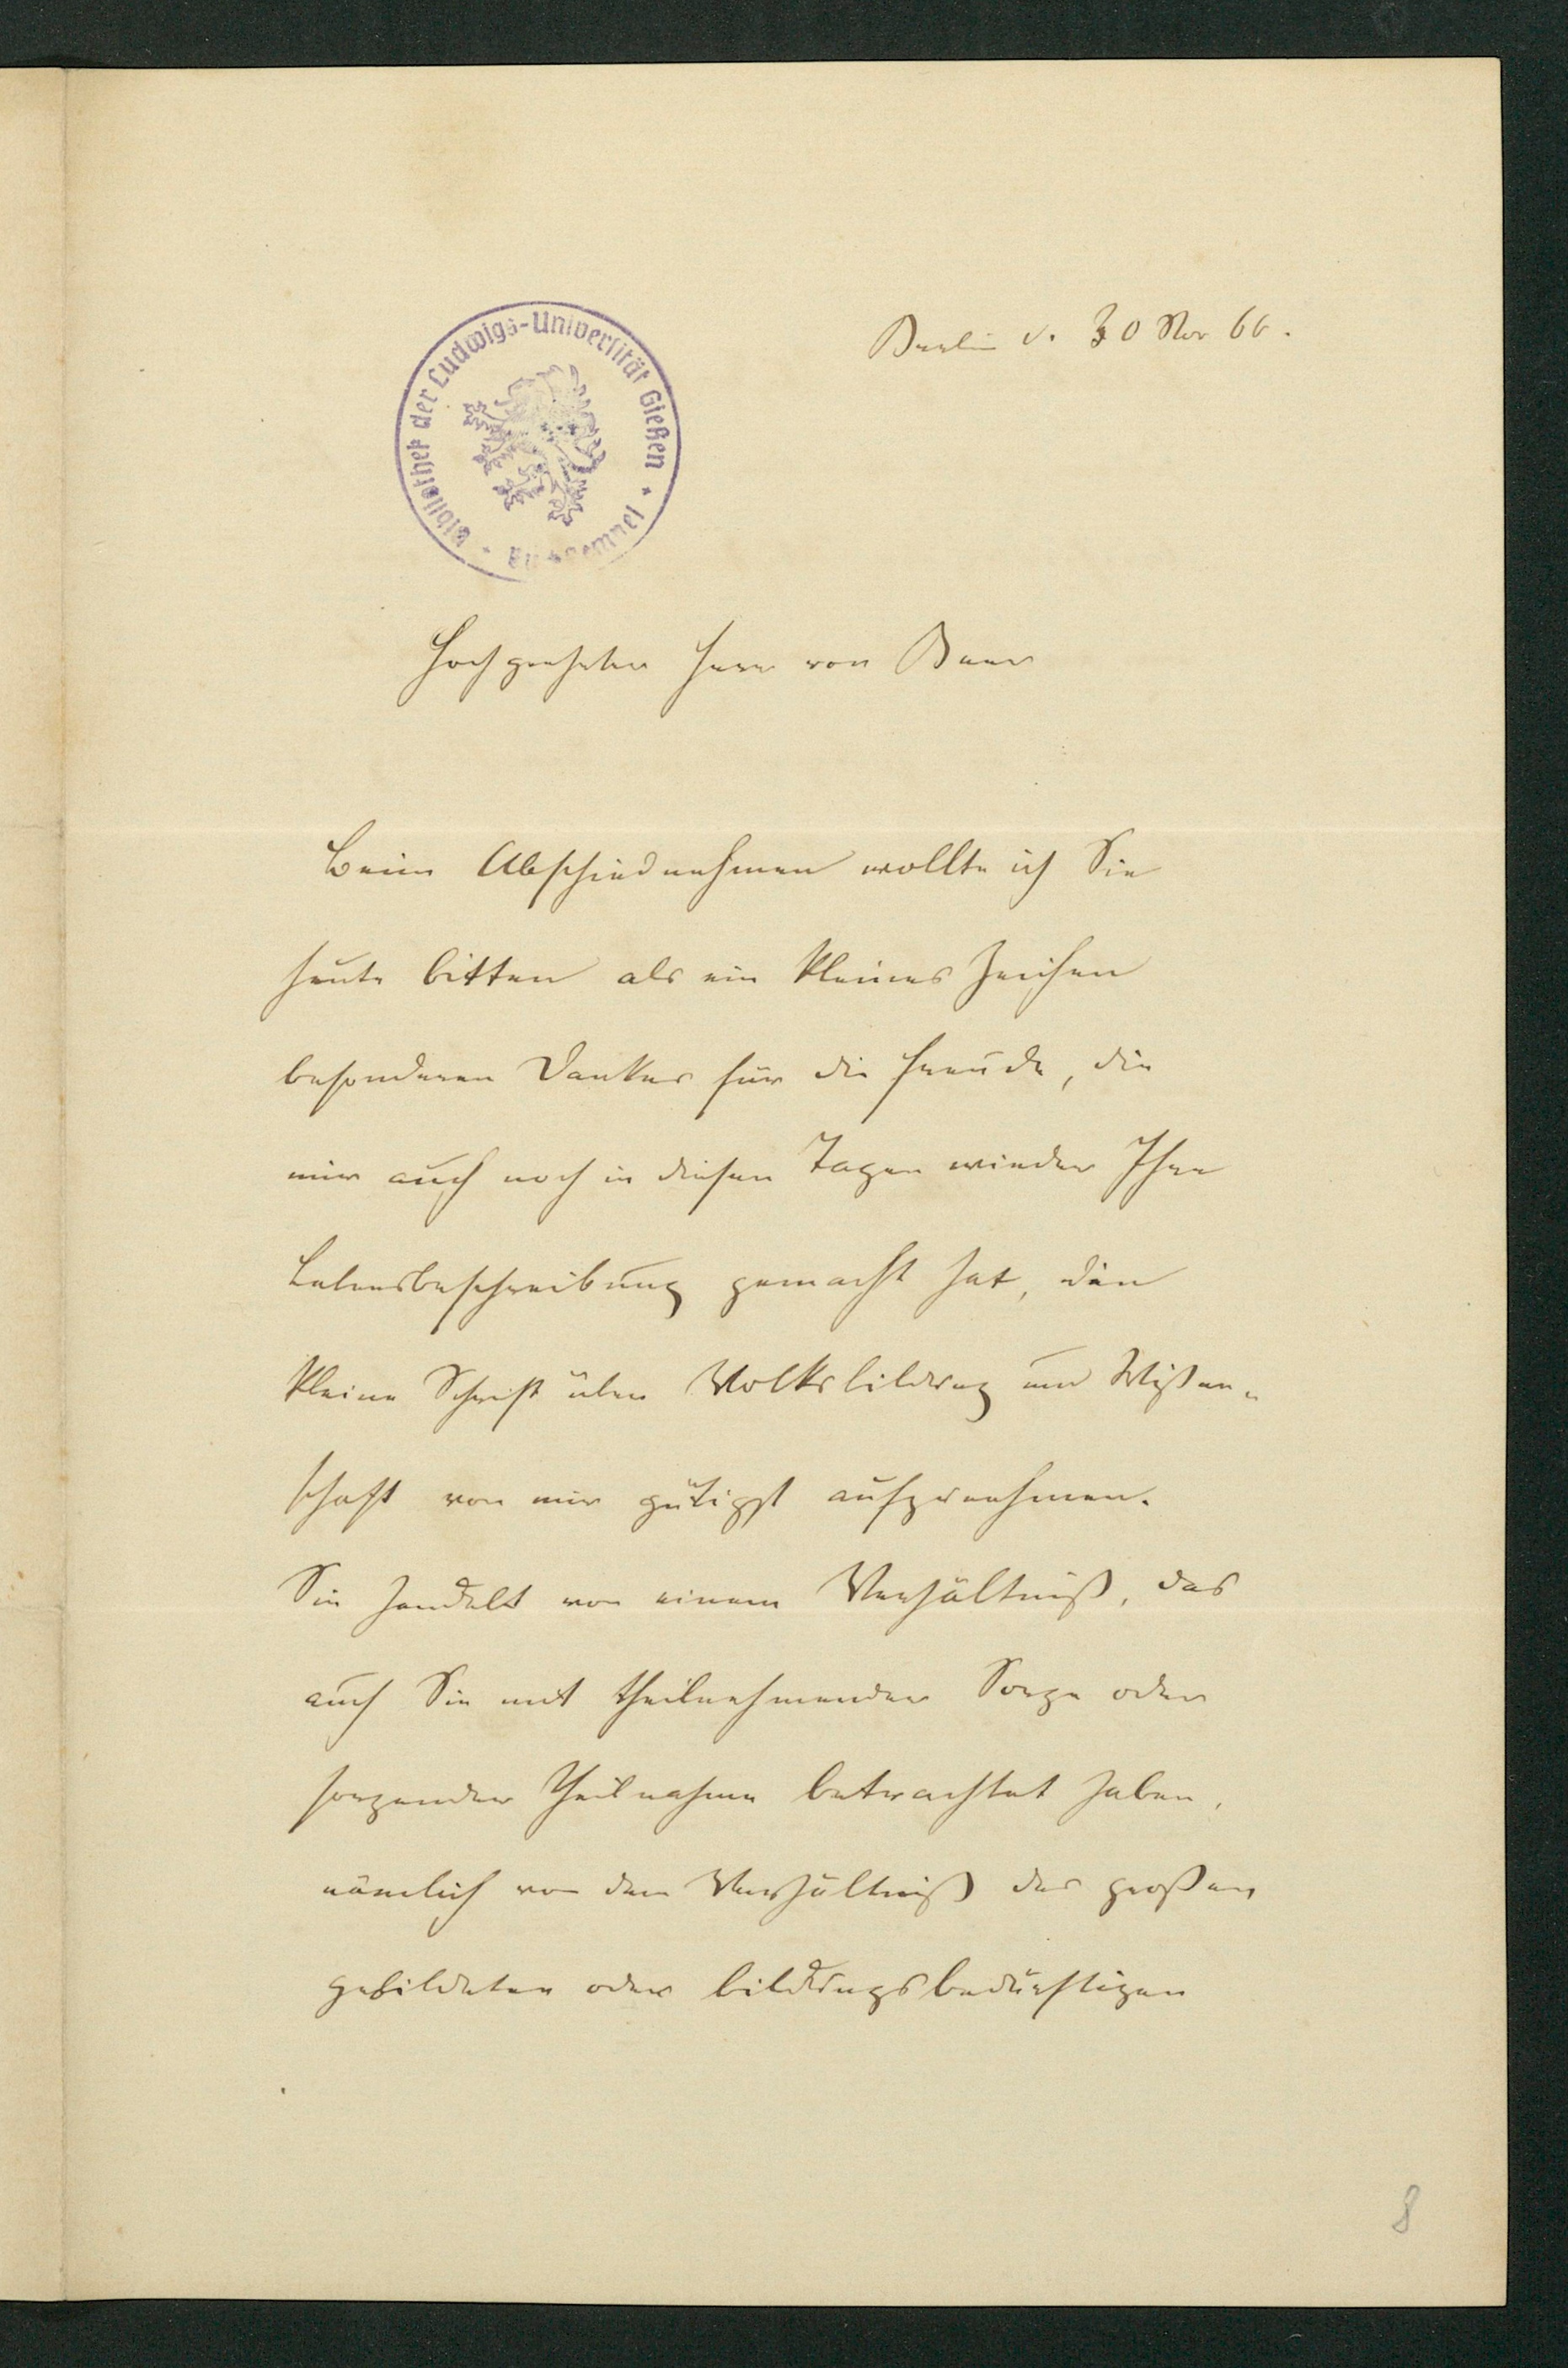 Berlin d. 30 Nov 66.
Bibliothek der Ludwigs-Universität Gießen
Hochgeehrter Herr von Baer
Beim Abschiednehmen wollte ich Sie
heute bitten als ein kleines Zeichen
besonderen Dankes für die Freude, die
mir auch noch in diesen Tagen wieder Ihre
Lebensbeschreibung gemacht hat, die
kleine Schrift über Volksbildung und Wißen-
schaft von mir gütigst aufzunehmen.
Sie handelt von einem Verhältniß, das
auch Sie mit theilnehmender Sorge oder
sorgender Theilnahme betrachtet haben,
nämlich von dem Verhältniß der großen
gebildeten oder bildungsbedürftigen
8